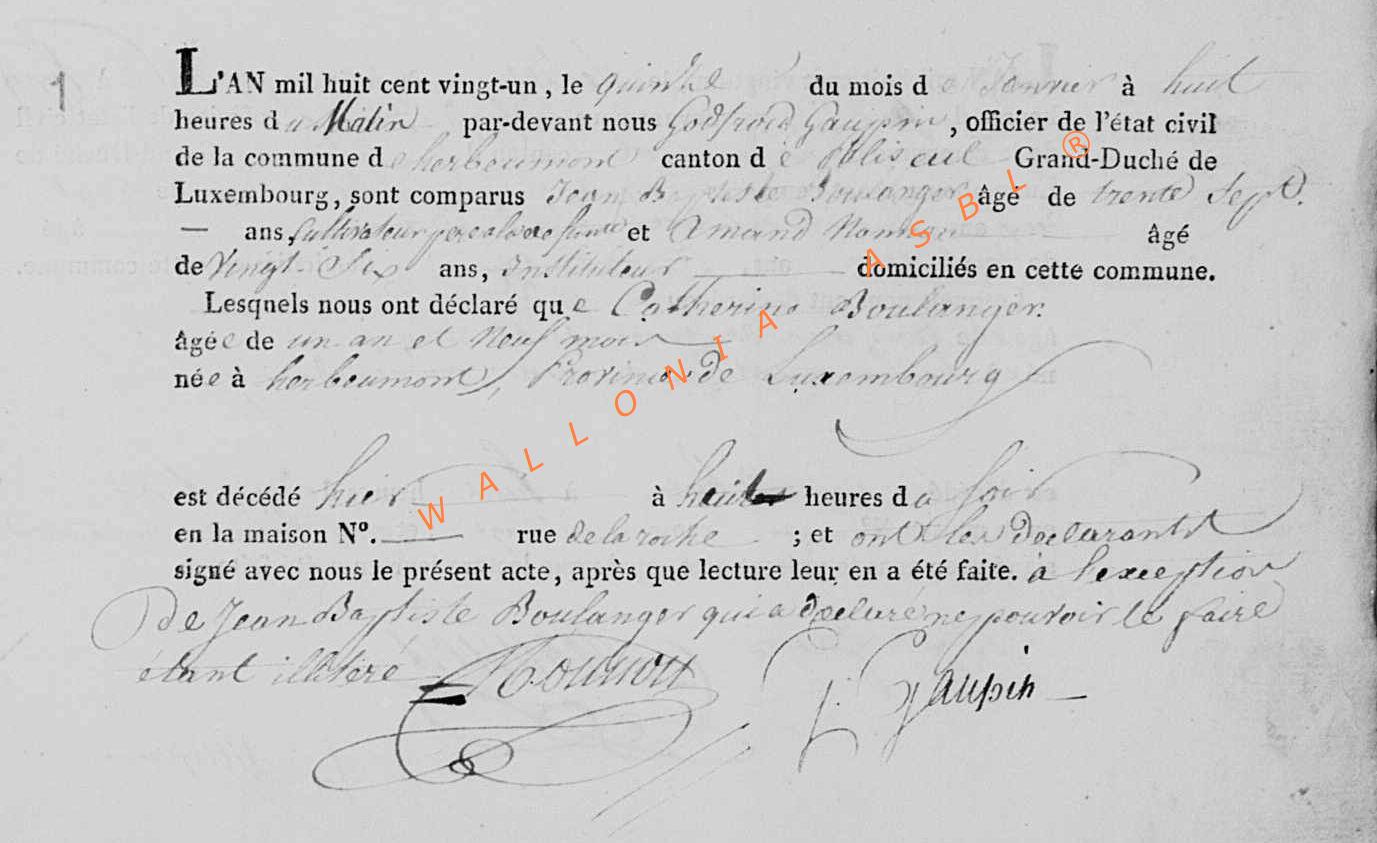 1
L'AN mil huit cent vingt-un, le quinze du mois de Janvier à huit
heures du Matin par-devant nous Godfroid Gaupin, officier de l'état civil
de la commune d'herbeumont canton de paliseul Grand-Duché de
Luxembourg, sont comparus Jean Baptiste Boulanger âgé de trente Sept
— ans, Cultivateur pere de la defunte et Amand âgé
de Vingt Six ans, Instituteur domiciliés en cette commune.
Lesquels nous ont déclaré que Catherine Boulanger.
âgée de un an et Neuf mois
née à herbeumont, Province de Luxembourg
est décédé hier à huit heures du soir
en la maison N°. — rue de la roche ; et ont les declarants
signé avec nous le présent acte, après que lecture leur en a été faite. à l'exception
De Jean Baptiste Boulanger qui a declaré ne pouvoir le faire
étant illiteré
G Gaupin
WALLONIA ASBL ®